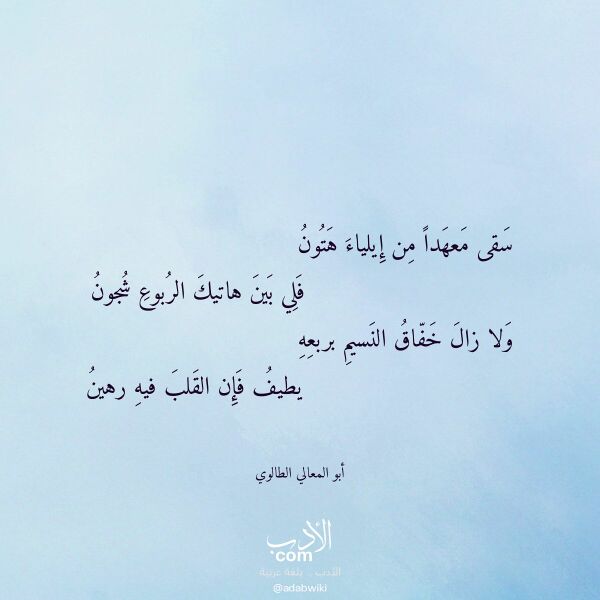 سَقى مَعهَداً مِن إِيلياءَ هَتُونُ
فَلِي بَينَ هاتيكَ الرُبوعِ شُجونُ
وَلا زالَ خَفّاقُ النَسيمِ بربعِهِ
يطيفُ فَإِن القَلبَ فيهِ رهينُ
أبو المعالي الطالوي
الأدب
com
الأدب .. بلغة عربية
@adabwiki